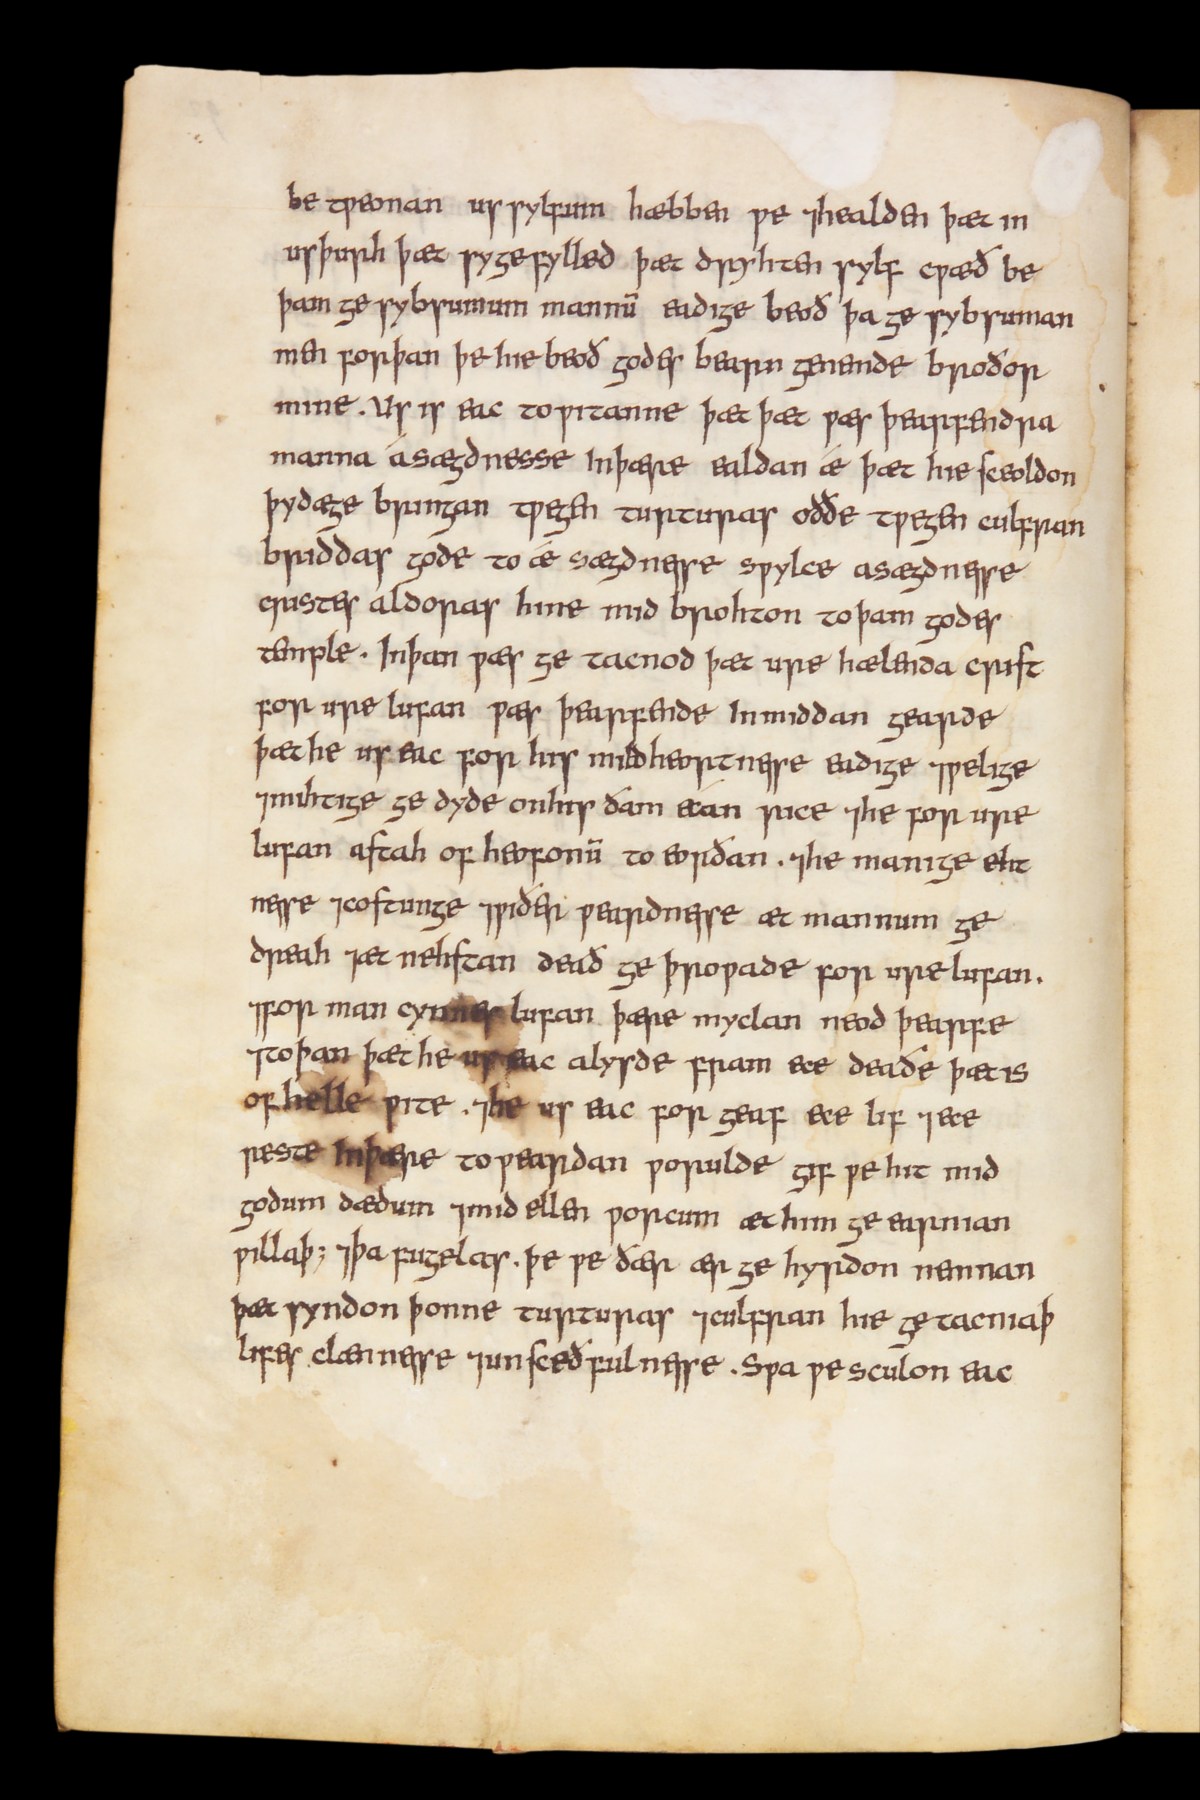 be tƿeonan us sylfum hæbben ƿe ⁊healden þæt in
usþurh þæt sygefylled þæt dryhten sylf cƿæð be
þam ge sybsumum mannū eadige beoð þa ge sybsuman
men forþan þe hie beoð godes bearn genemde broðor
mine. Us is eac to ƿitanne þæt þæt ƿæs þearfendra
manna ásægdnesse Inþære ealdan ǽ þæt hie sceoldon
þydæge bringan tƿegen turturas oððe tƿegen culfran
briddas gode to ǽ sægdnesse sƿylce asægdnesse
cristes aldoras hine mid brohton toþam godes
temple. Inþan ƿæs ge tacnod þæt ure hælenda crist
for ure lufan ƿæs þearfende Inmiddan gearde
þæt he us eac for his mildheortnesse eadige ⁊ƿelige
⁊mihtige ge dyde onhis ðam ecan rice ⁊he for ure
lufan astah of heofonū to eorðan. ⁊he manige eht
nesse ⁊costunge ⁊ƿiðer ƿeardnesse æt mannum ge
dreah ⁊æt nehstan deað ge þroƿade for ure lufan.
⁊for man cynnes lufan þære myclan neod þearfe
⁊toþan þæt he us eac alysde fram ece deaðe þæt is
of helle ƿite. ⁊he us eac for geaf ece lif ⁊ece
reste Inþære toƿeardan ƿorulde gif ƿe hit mid
godum dædum ⁊mid ellen ƿorcum æt him ge earnian
ƿillaþ; ⁊þa fugelas. þe ƿe ðær ær ge hyrdon nemnan
þæt syndon þonne turturas ⁊culfran hie ge tacniaþ
lifes clænnesse ⁊unsceðfulnesse. Sƿa ƿe sculon eac